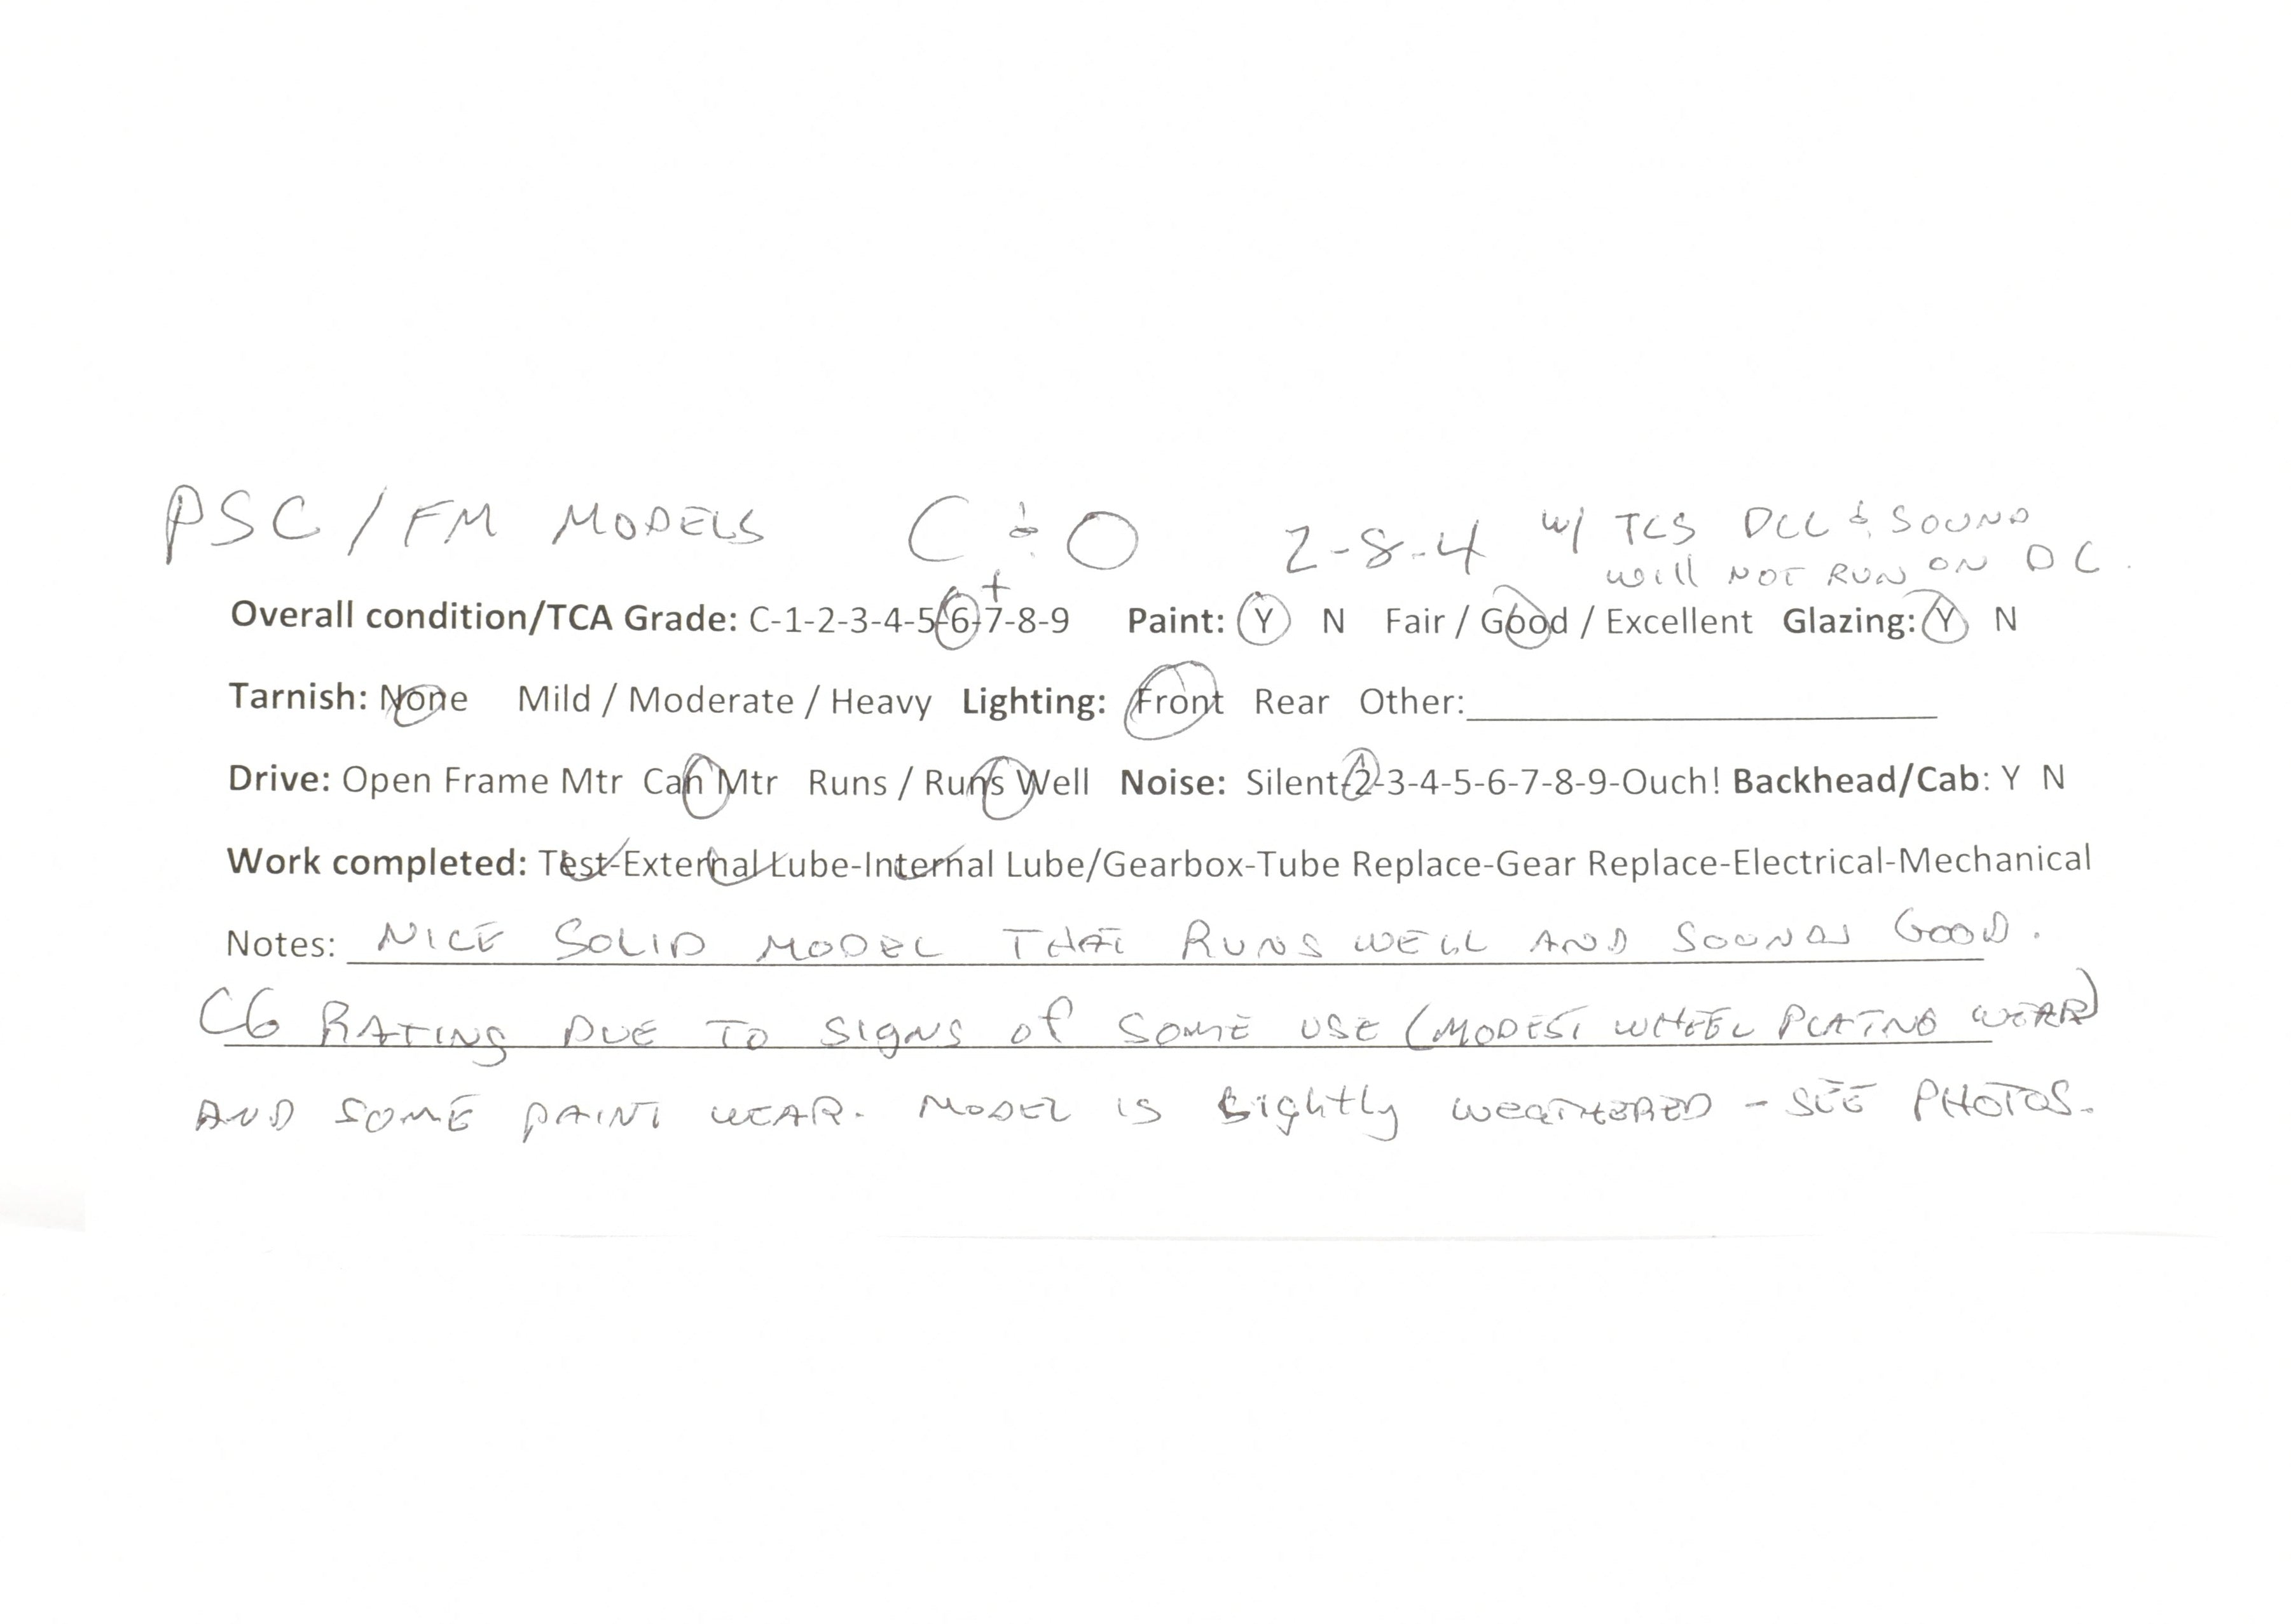 PSC / FM MODELS C & O 2-8-4 w/ TCS DCC & SOUND
will NOT RUN ON DC.
+
Overall condition/TCA Grade: C-1-2-3-4-5-6-7-8-9 Paint: Y N Fair / Good / Excellent Glazing: Y N
Tarnish: None Mild / Moderate / Heavy Lighting: Front Rear Other:
Drive: Open Frame Mtr Can Mtr Runs / Runs Well Noise: Silent-2-3-4-5-6-7-8-9-Ouch! Backhead/Cab: Y N
Work completed: Test-External Lube-Internal Lube/Gearbox-Tube Replace-Gear Replace-Electrical-Mechanical
Notes: NICE SOLID MODEL THAT RUNS WELL AND SOUNDS GOOD.
C6 RATING DUE TO SIGNS OF SOME USE (MODEST WHEEL PLATING WEAR)
AND SOME PAINT WEAR. MODEL IS LIGHTLY WEATHERED - SEE PHOTOS.